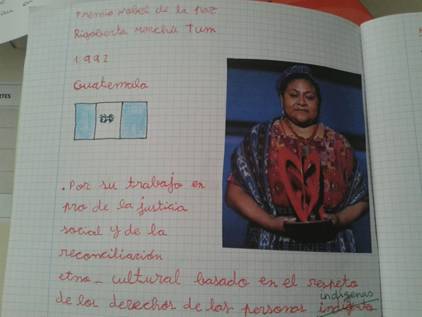 Premio Nobel de la Paz
Rigoberta Menchú Tum
1992
Guatemala
. Por su trabajo en
pro de la justicia
social y de la
reconciliación
etno- cultural basado en el respeto
indígenas
de los derechos de las personas